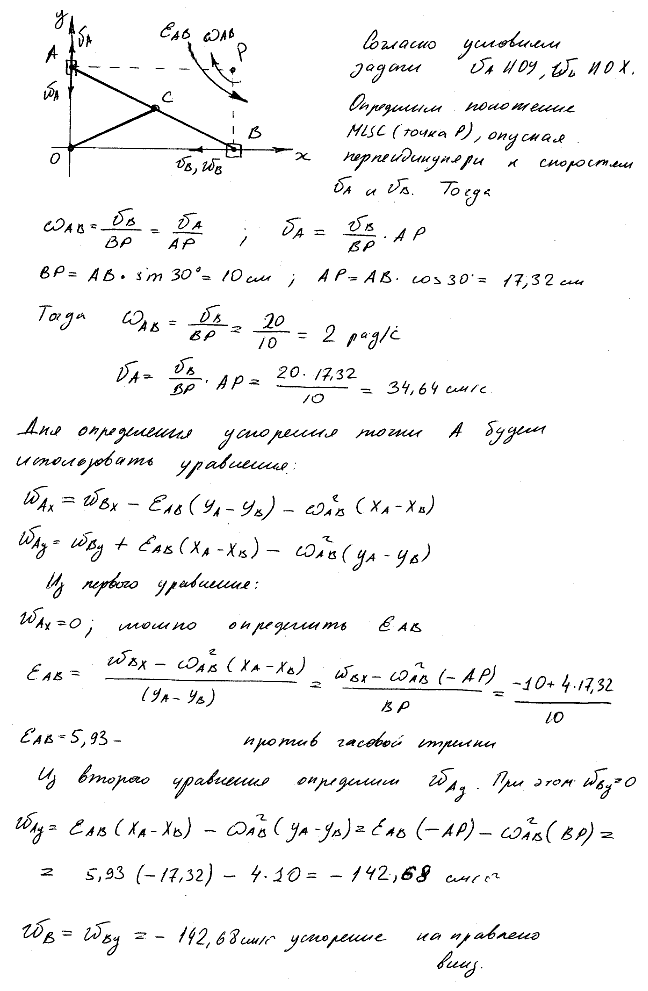 y
A
v_A
w_A
ε_AB
ω_AB
P
C
B
O
v_B, w_B
x
Согласно условием
задачи v_A ∥ OY, w_B ∥ OX.
Определим положение
МЦС (точка P), опуская
перпендикуляри к скоростям
v_A и v_B. Тогда
ω_AB = v_B / BP = v_A / AP ; v_A = v_B / BP · AP
BP = AB · sin 30° = 10 см ; AP = AB · cos 30° = 17,32 см
Тогда ω_AB = v_B / BP = 20 / 10 = 2 рад/с
v_A = v_B / BP · AP = 20 · 17,32 / 10 = 34,64 см/с
Для определения ускорения точки A будем
использовать уравнения:
w_Ax = w_Bx − ε_AB (y_A − y_B) − ω²_AB (x_A − x_B)
w_Ay = w_By + ε_AB (x_A − x_B) − ω²_AB (y_A − y_B)
Из первого уравнение:
w_Ax = 0 ; можно определить ε_AB
ε_AB = w_Bx − ω²_AB (x_A − x_B) / (y_A − y_B) = w_Bx − ω²_AB (− AP) / BP = −10 + 4 · 17,32 / 10
ε_AB = 5,93 − против часовой стрелки
Из второго уравнения определим w_Ay. При этом w_By = 0
w_Ay = ε_AB (x_A − x_B) − ω²_AB (y_A − y_B) = ε_AB (− AP) − ω²_AB (BP) =
= 5,93 (−17,32) − 4 · 10 = − 142,68 см/с²
w_B = w_By = − 142,68 см/с ускорение направлено
вниз.